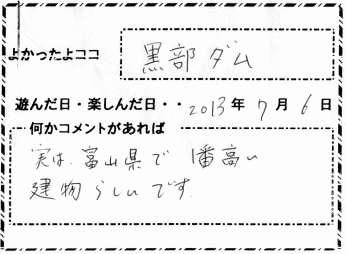 よかったよココ 黒部ダム
遊んだ日・楽しんだ日・・2013年7月6日
何かコメントがあれば
実は、富山県で1番高い
建物らしいです。